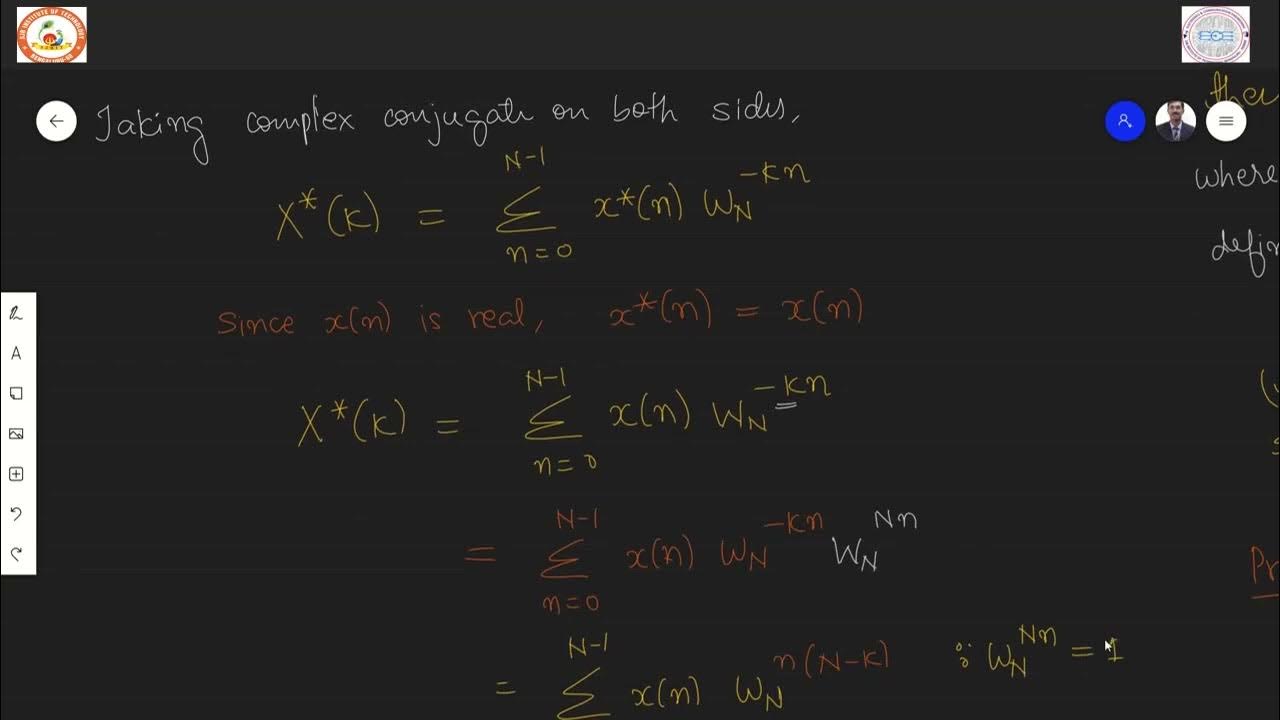 Taking complex conjugate on both sides,
X*(k) = Σ_{n=0}^{N-1} x*(n) W_N^{-kn}
Since x(n) is real, x*(n) = x(n)
X*(k) = Σ_{n=0}^{N-1} x(n) W_N^{-kn}
= Σ_{n=0}^{N-1} x(n) W_N^{-kn} W_N^{Nn}
= Σ x(n) W_N^{n(N-k)} ∵ W_N^{Nn} = 1
where
A